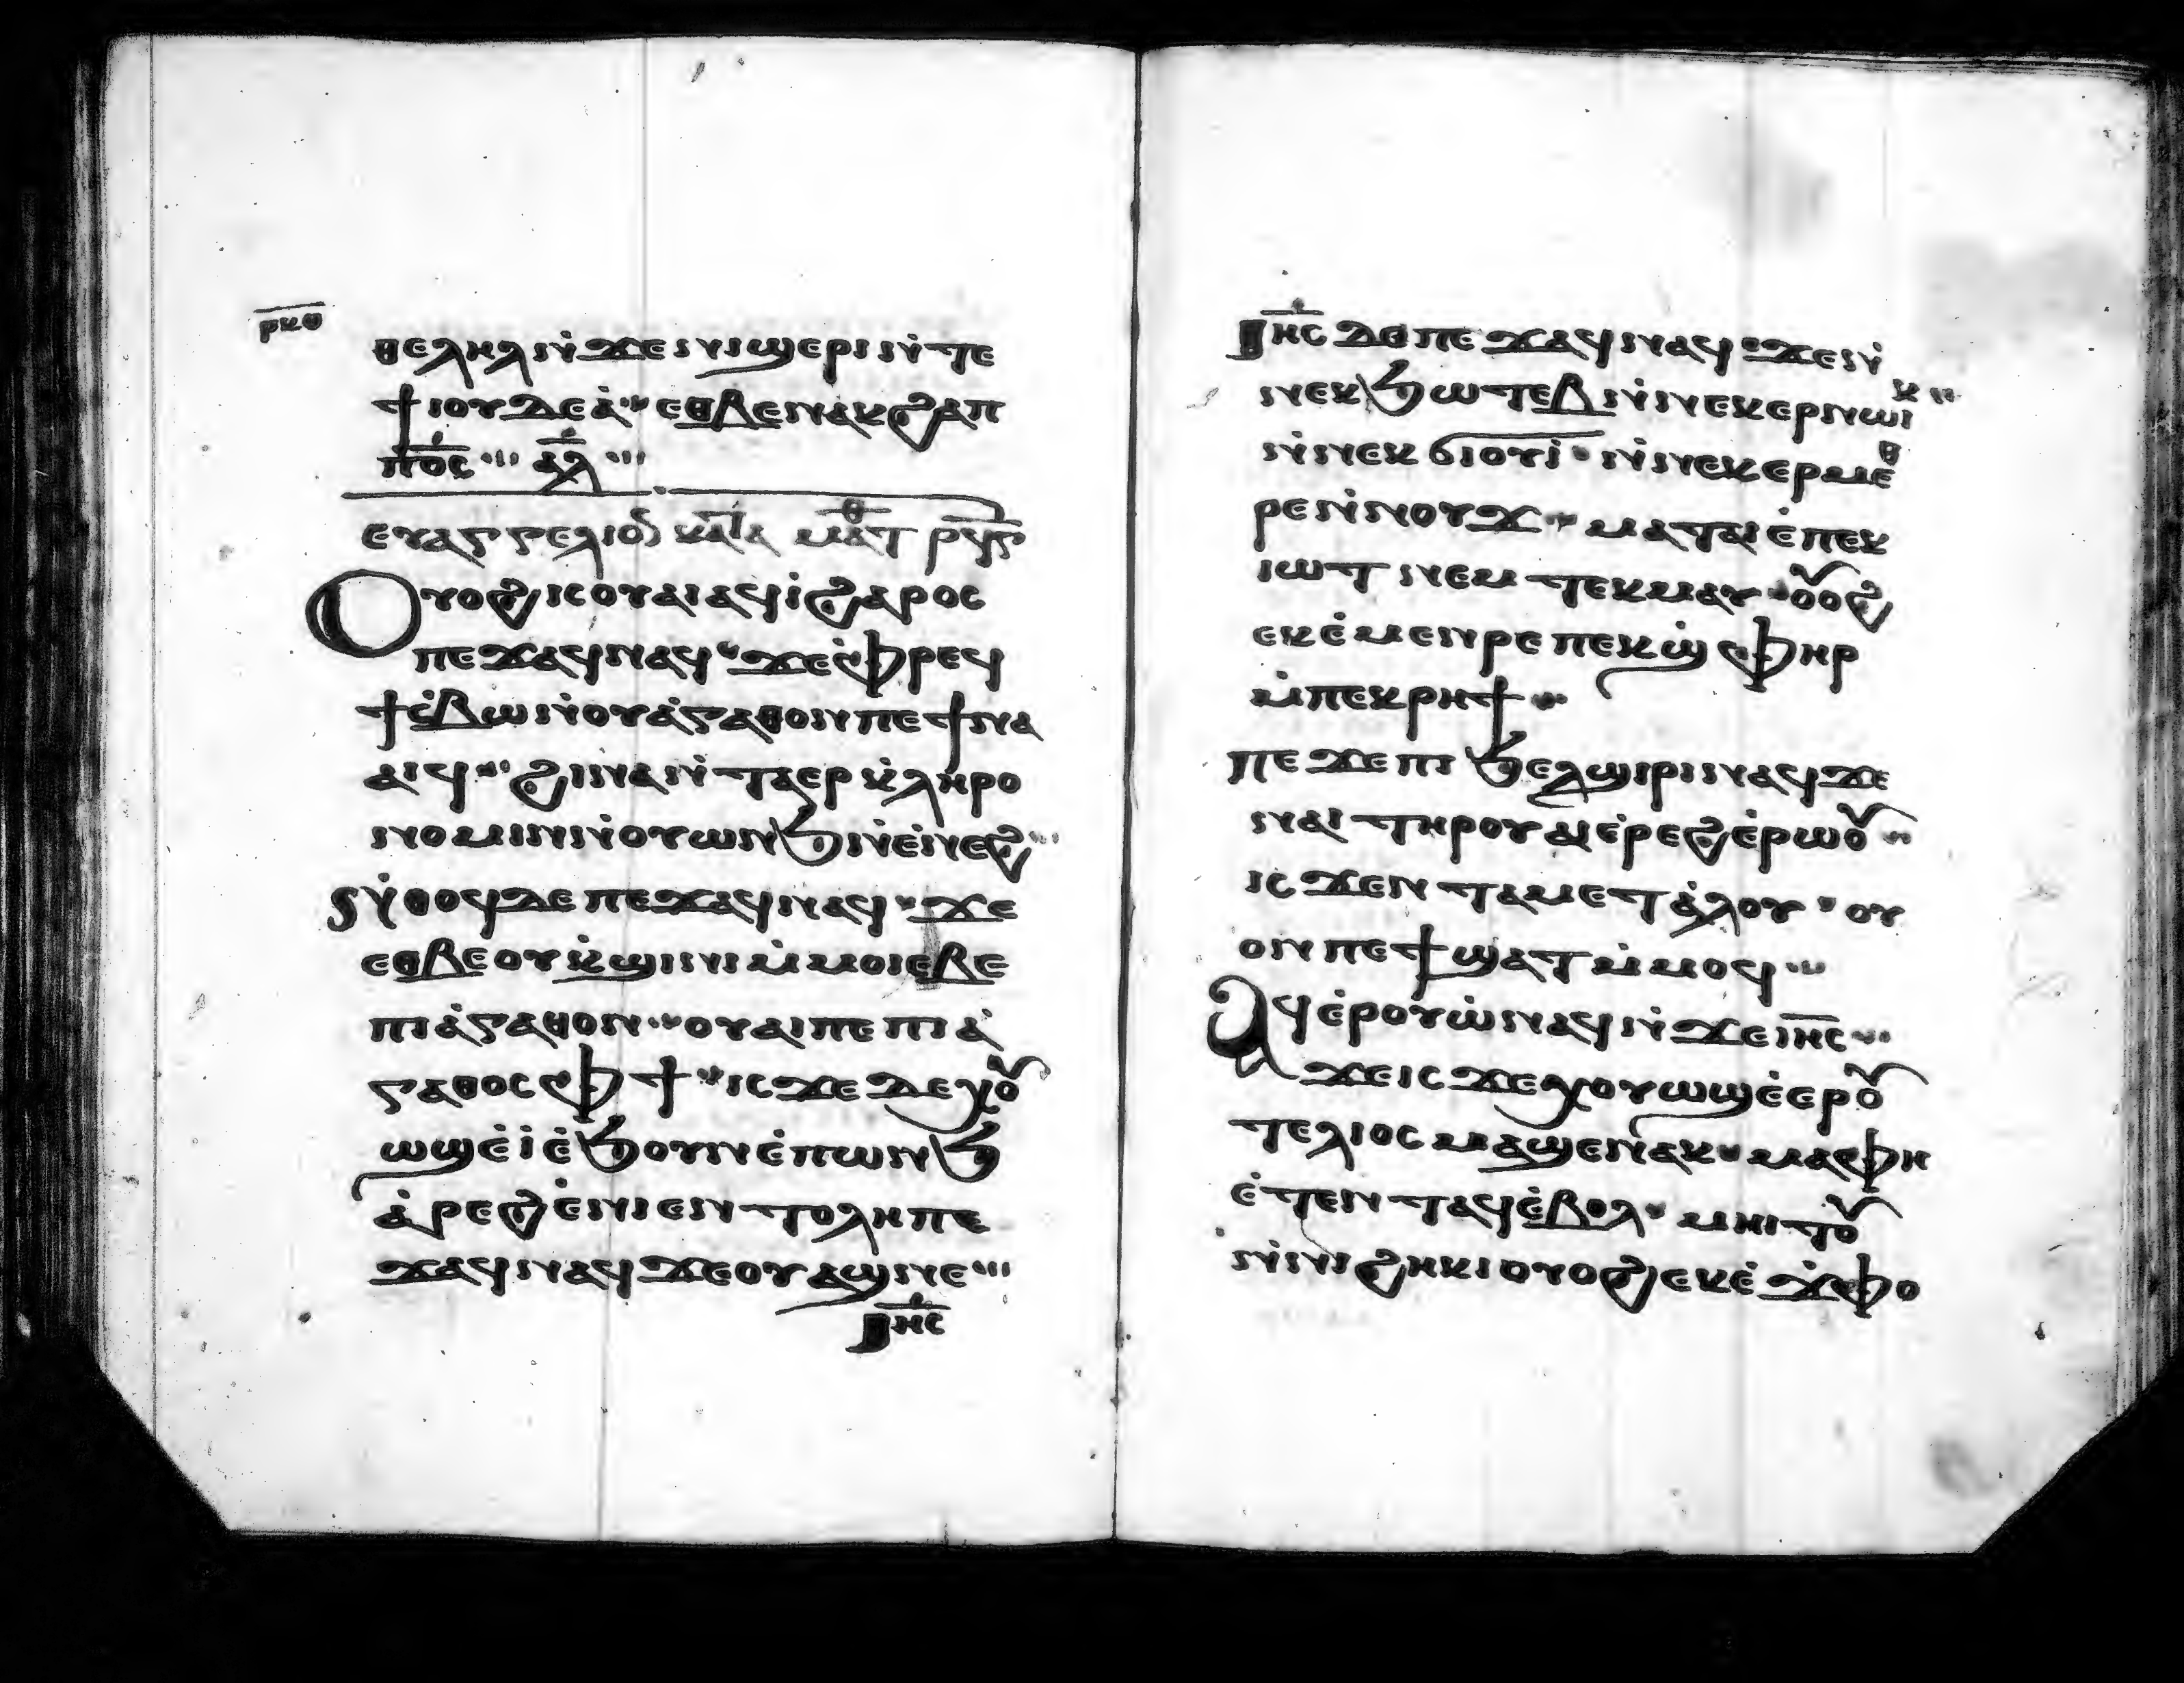 ⲣⲕⲑ
ⲑⲉⲗⲏⲗ ⲛ̇ϫⲉ ⲛⲓϣⲉⲣⲓ ⲛ̇ⲧⲉ
ϯⲓⲟⲩⲇⲉⲁ̇ ⲉⲑⲃⲉ ⲛⲉⲕϩⲁⲡ
ⲡ̅ⲟ̅ⲥ̅ ⲁ̅ⲗ̅
ⲉⲩⲁⲅⲅⲉⲗⲓⲟⲛ ⲕⲁⲧⲁ ⲙⲁⲧ
Ⲟⲩⲟϩ ⲓⲥ ⲟⲩⲁⲓ ⲁϥⲓ̇ ϩⲁⲣⲟϥ
ⲡⲉϫⲁϥ ⲛⲁϥ ϫⲉ ⲫ̇ⲣⲉϥ
ϯⲥ̇ⲃⲱ ⲛ̇ⲟⲩⲁ̇ⲅⲁⲑⲟⲛ ⲡⲉϯⲛⲁ
ⲁⲓϥ ϩⲓⲛⲁ ⲛ̇ⲧⲁⲉⲣⲕ̇ⲗⲏⲣⲟ
ⲛⲟⲙⲓⲛ ⲛ̇ⲟⲩⲱⲛϧ ⲛ̇ⲉ̇ⲛⲉϩ
Ⲛ̇ⲑⲟϥ ⲇⲉ ⲡⲉϫⲁϥ ⲛⲁϥ ϫⲉ
ⲉⲑⲃⲉ ⲟⲩ ⲕ̇ϣⲓⲛⲓ ⲙ̇ⲙⲟⲓ ⲉⲃⲉ
ⲡⲓⲁ̇ⲅⲁⲑⲟⲛ ⲟⲩⲁⲓ ⲡⲉ ⲡⲓⲁ̇
ⲅⲁⲑⲟⲥ ⲫϯ ⲓⲥϫⲉ ⲇⲉ ⲭⲟⲩ
ⲱϣ ⲉ̇ⲓ̇ ⲉ̇ϧⲟⲩⲛ ⲉ̇ⲡⲱⲛϧ
ⲁ̇ⲣⲉϩ ⲉ̇ⲛⲓⲉⲛⲧⲟⲗⲏ ⲡⲉ
ϫⲁϥ ⲛⲁϥ ϫⲉ ⲟⲩ ⲁϣ ⲛⲉ
Ⲓ̅ⲏ̅ⲥ̅
Ⲓ̅ⲏ̅ⲥ̅ ⲇⲉ ⲡⲉϫⲁϥ ⲛⲁϥ ϫⲉ ⲛ̇
ⲛⲉⲕϧⲱⲧⲉⲃ ⲛ̇ⲛⲉⲕⲉⲣⲛⲱⲓⲕ
ⲛ̇ⲛⲉⲕϭⲓⲟⲩⲓ̇ ⲛ̇ⲛⲉⲕⲉⲣⲙⲉⲑ
ⲣⲉ ⲛ̇ⲛⲟⲩϫ ⲙⲁⲧⲁⲓⲉ̇ ⲡⲉⲕ
ⲓⲱⲧ ⲛⲉⲙ ⲧⲉⲕⲙⲁⲩ ⲟⲩⲟϩ
ⲉⲕⲉ̇ⲙⲉⲛⲣⲉ ⲡⲉⲕϣ̇ⲫⲏⲣ
ⲙ̇ⲡⲉⲕⲣⲏϯ
ⲡⲉϫⲉ ⲡⲓϧⲉⲗϣⲓⲣⲓ ⲛⲁϥ ϫⲉ
ⲛⲁⲓ ⲧⲏⲣⲟⲩ ⲁⲓⲉ̇ⲣⲉϩ ⲉ̇ⲣⲱⲟⲩ
ⲓⲥϫⲉⲛ ⲧⲁⲙⲉⲧⲁ̇ⲗⲟⲩ ⲟⲩ
ⲟⲛ ⲡⲉϯϣⲁⲧ ⲙ̇ⲙⲟϥ
Ⲁϥⲉ̇ⲣⲟⲩⲱ̇ ⲛⲁϥ ⲛ̇ϫⲉ ⲓ̅ⲏ̅ⲥ̅
ϫⲉ ⲓⲥϫⲉ ⲭⲟⲩⲱϣ ⲉ̇ⲉⲣⲟⲩ
ⲧⲉⲗⲓⲟⲥ ⲙⲁϣⲉⲛⲁⲕ ⲙⲁ ⲫⲏ
ⲉ̇ⲧⲉⲛⲧⲁϥ ⲉ̇ⲃⲟⲗ ⲙⲏⲓⲧⲟⲩ
ⲛ̇ⲛⲓϩⲏⲕⲓ ⲟⲩⲟϩ ⲉⲕⲉ̇ϫ̇ⲫⲟ